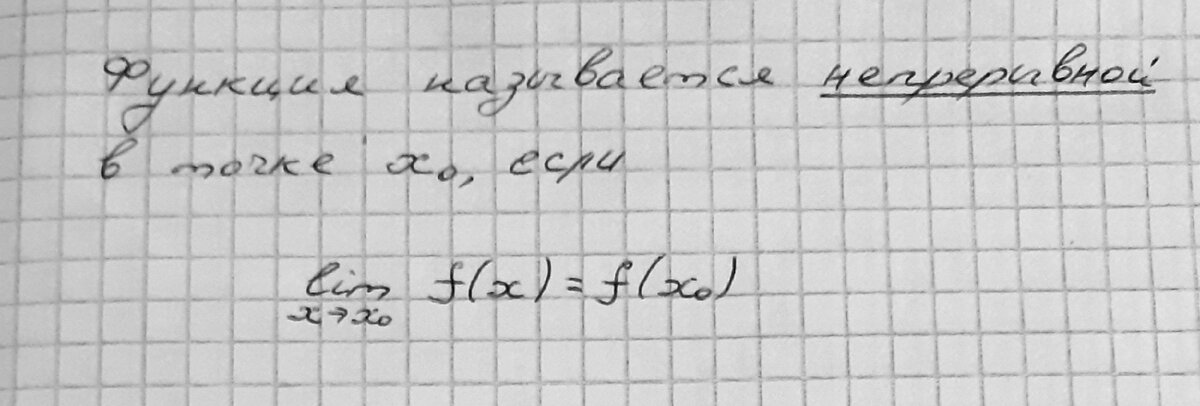 Функция называется непрерывной
в точке x₀, если
lim f(x) = f(x₀)
x→x₀